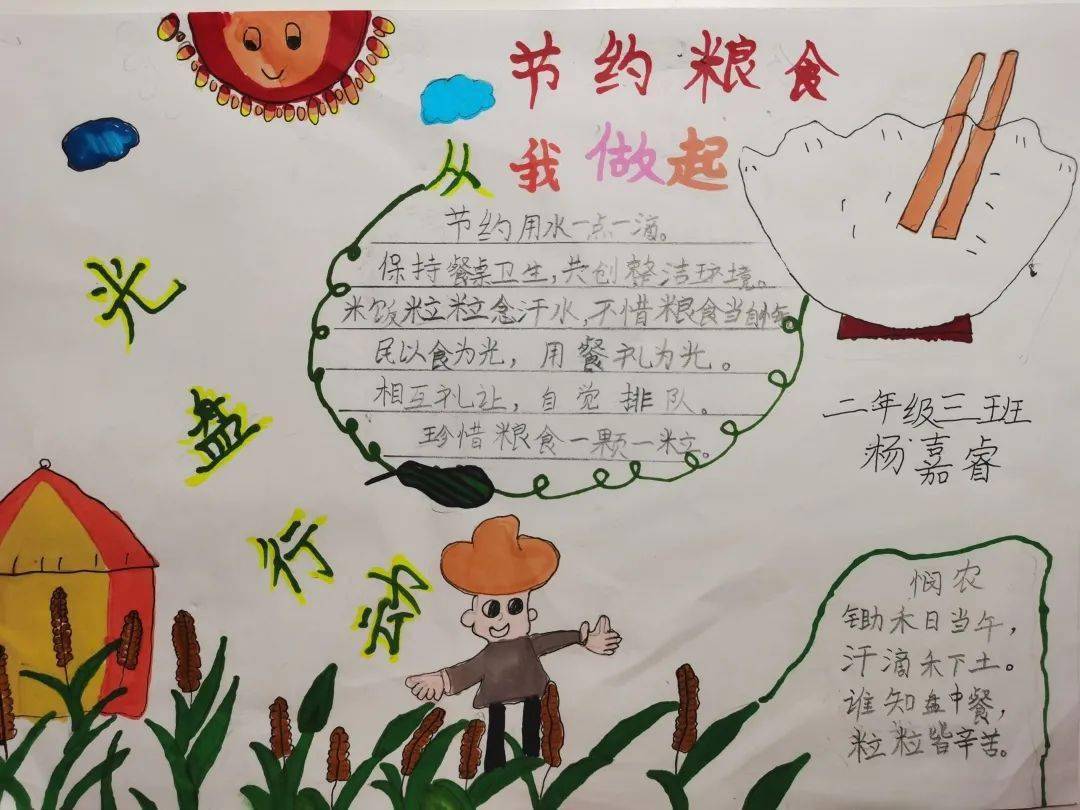 节约粮食
从我做起
节约用水一点一滴。
保持餐桌卫生，共创整洁环境。
米饭粒粒念汗水，不惜粮食当自
民以食为光，用餐礼为光。
相互礼让，自觉排队。
珍惜粮食一颗一粒。
光盘行动
二年级三班
杨嘉睿
悯农
锄禾日当午，
汗滴禾下土。
谁知盘中餐，
粒粒皆辛苦。